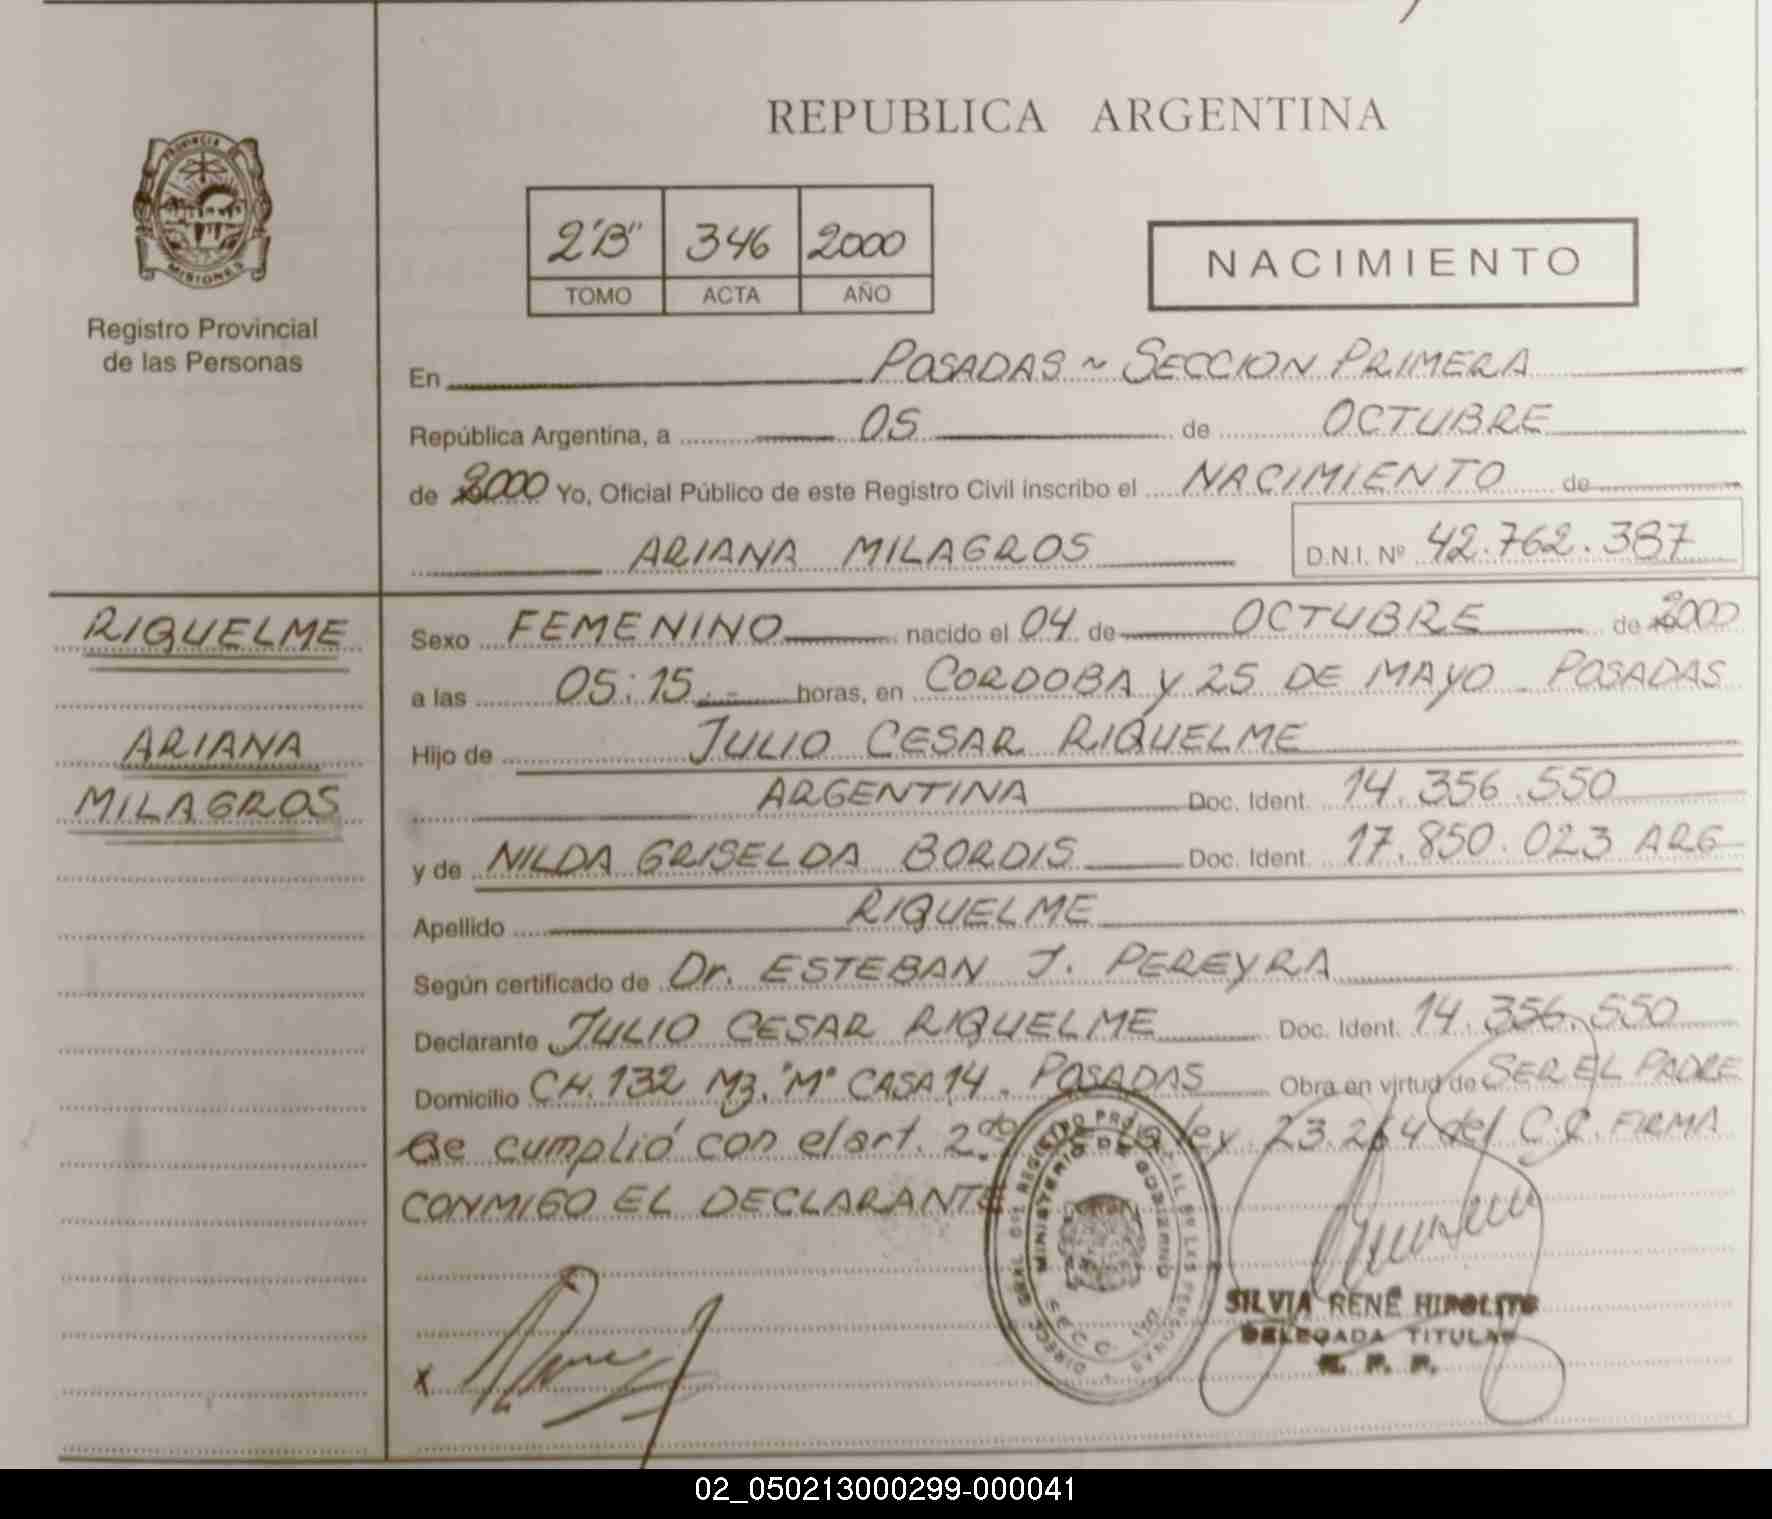 REPUBLICA ARGENTINA
PROVINCIA DE
MISIONES
Registro Provincial
de las Personas
2"B" 346 2000
TOMO ACTA AÑO
NACIMIENTO
En POSADAS ~ SECCION PRIMERA
República Argentina, a 05 de OCTUBRE
de 2000 Yo, Oficial Público de este Registro Civil inscribo el NACIMIENTO de
ARIANA MILAGROS D.N.I. Nº 42.762.387
RIQUELME
ARIANA
MILAGROS
Sexo FEMENINO nacido el 04 de OCTUBRE de 2000
a las 05:15.- horas, en CORDOBA y 25 DE MAYO - POSADAS
Hijo de JULIO CESAR RIQUELME
ARGENTINA Doc. Ident. 14.356.550
y de NILDA GRISELDA BORDIS Doc. Ident. 17.850.023 ARG
Apellido RIQUELME
Según certificado de Dr. ESTEBAN J. PEREYRA
Declarante JULIO CESAR RIQUELME Doc. Ident. 14.356.550
Domicilio CH. 132 Mz. "M" CASA 14 - POSADAS Obra en virtud de SER EL PADRE
Se cumplió con el art. 2do de la ley 23.264 del C.C. FIRMA
CONMIGO EL DECLARANTE
MINISTERIO DE GOBIERNO
SILVIA RENÉ HIPOLITO
DELEGADA TITULAR
R. P. P.
x
02_050213000299-000041